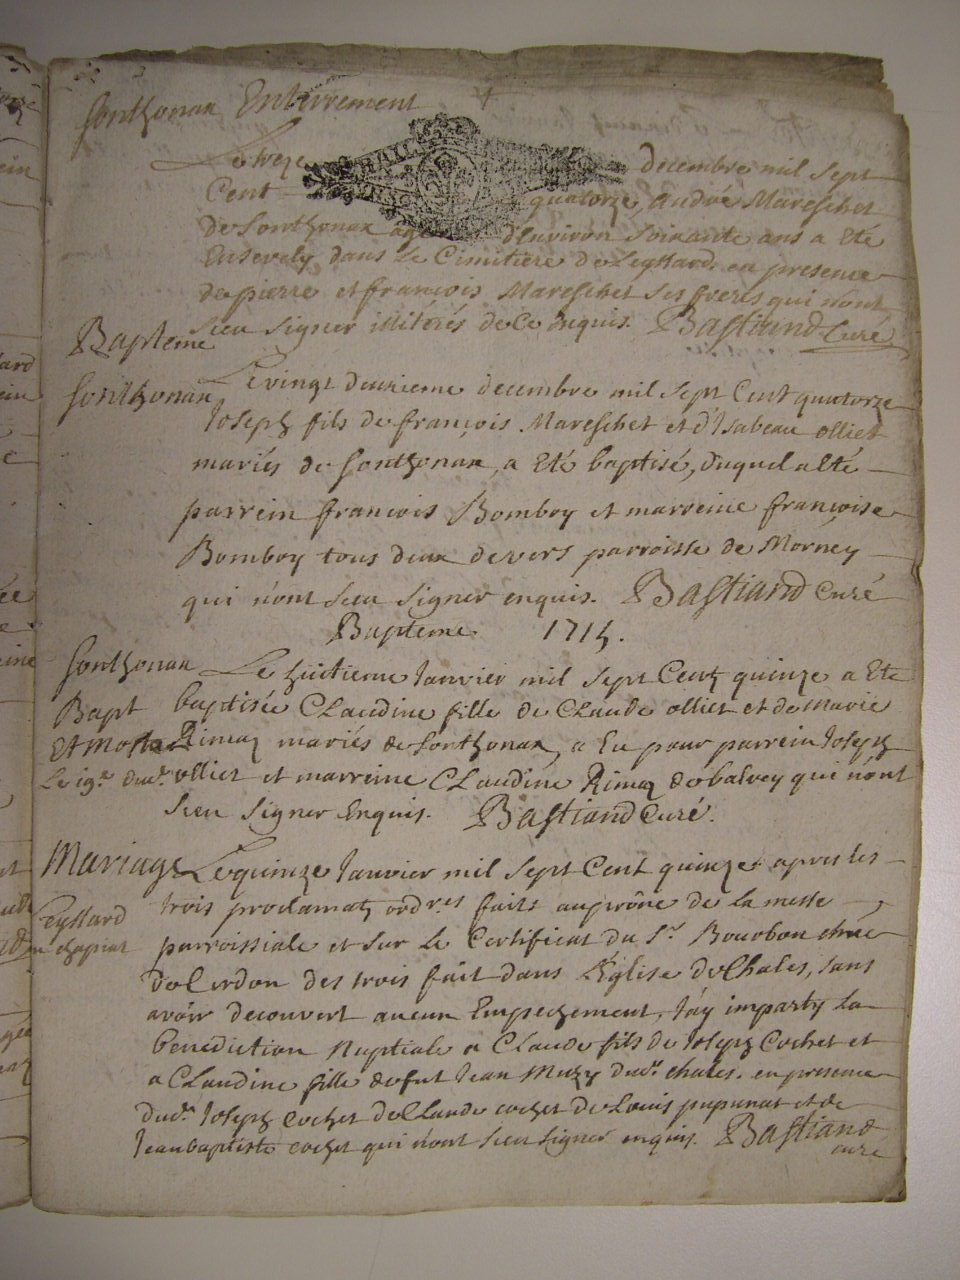 Sonthonax Enterrement
Le treze decembre mil sept
Cent quatorze, André Mareschet
de Sonthonax agé d'Environ soixante ans a Eté
Ensevely dans Le Cimitiere de Leyssard, en presence
de pierre et françois Mareschet ses freres qui n'ont
sceu signer illiterés de ce Enquis. Bastiand Curé
Bapteme
Sonthonax Le vingt deuxieme decembre mil sept Cent quatorze
Joseph fils de françois Mareschet et d'Isabeau olliet
mariés de Sonthonax, a Eté baptisé, duquel a Eté
parrein françois Bomboy et marreine françoise
Bomboy tous deux de vers parroisse de Morney
qui n'ont sceu signer enquis. Bastiand Curé
Bapteme 1715.
Sonthonax Le huitieme Janvier mil sept Cent quinze a Eté
Bapt baptisée CLaudine fille de CLaude olliet et de Marie
Et morte Rimaz mariés de Sonthonax, a Eu pour parrein Joseph
Le 19e dud. olliet et marreine CLaudine Rimaz de balvey qui n'ont
sceu signer Enquis. Bastiand Curé.
Mariage Le quinze Janvier mil sept Cent quinze apres les
trois proclamat ordres faits au prône de la messe
Leyssard parroissiale et sur Le Certificat du Sr. Bourbon
de Cerdon des trois fait dans L'Eglise de Chales, sans
avoir decouvert aucun Empechement, J'ay imparty la
benediction Nuptiale a CLaude fils de Joseph Cochet et
a CLaudine fille de fut Jean Muzy dud. chales. en presence
dud. Joseph Cochet de Claude cochet de Louis pupunat et de
Jean baptiste cochet qui n'ont sceu signer enquis. Bastiand
curé